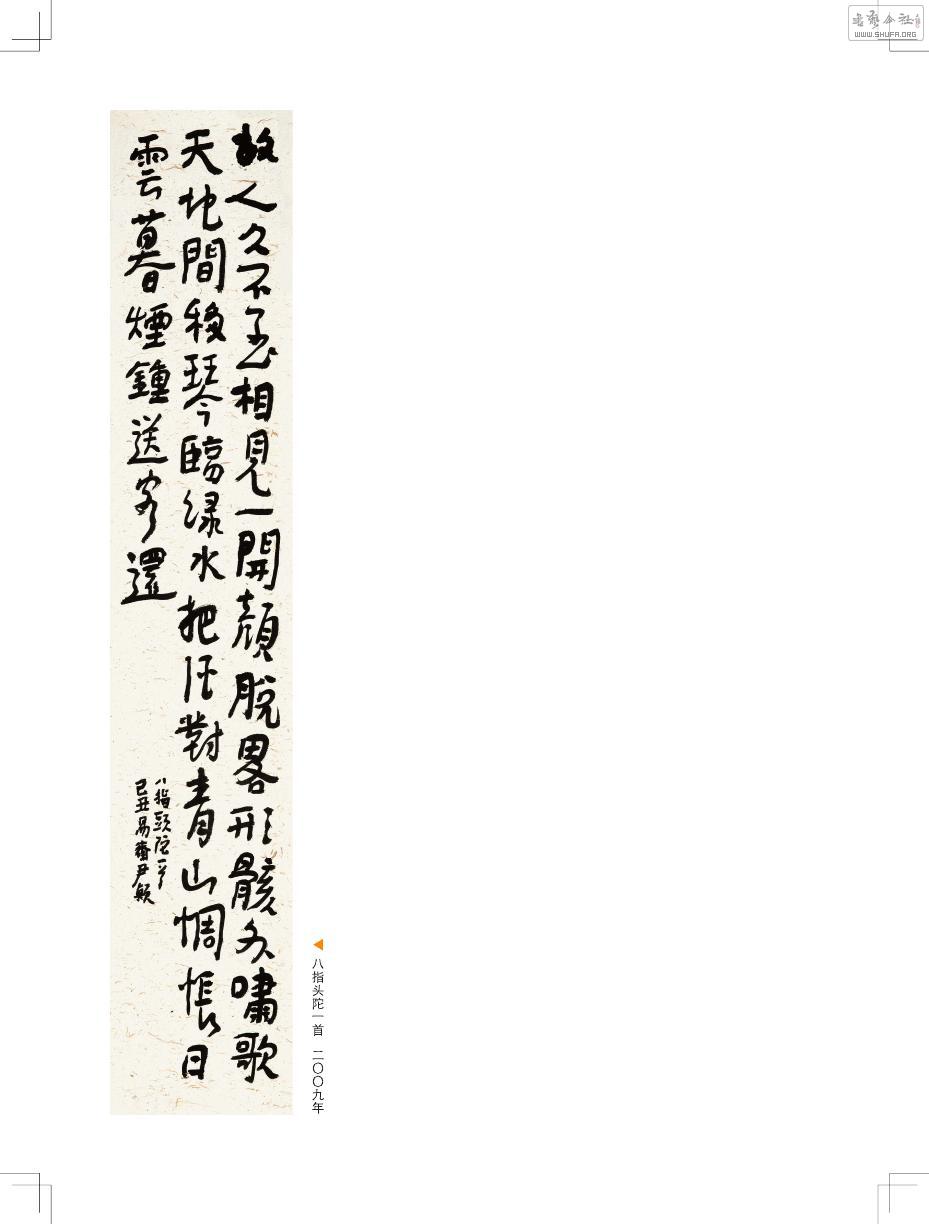 故人久不至相見一開顏脫畧形骸外嘯歌
天地間移琴臨緑水把酒對青山惆悵日
雲暮煙鐘送客還
八指頭陀一首
己丑易齋尹
八指头陀一首 二〇〇九年
WWW.SHUFA.ORG